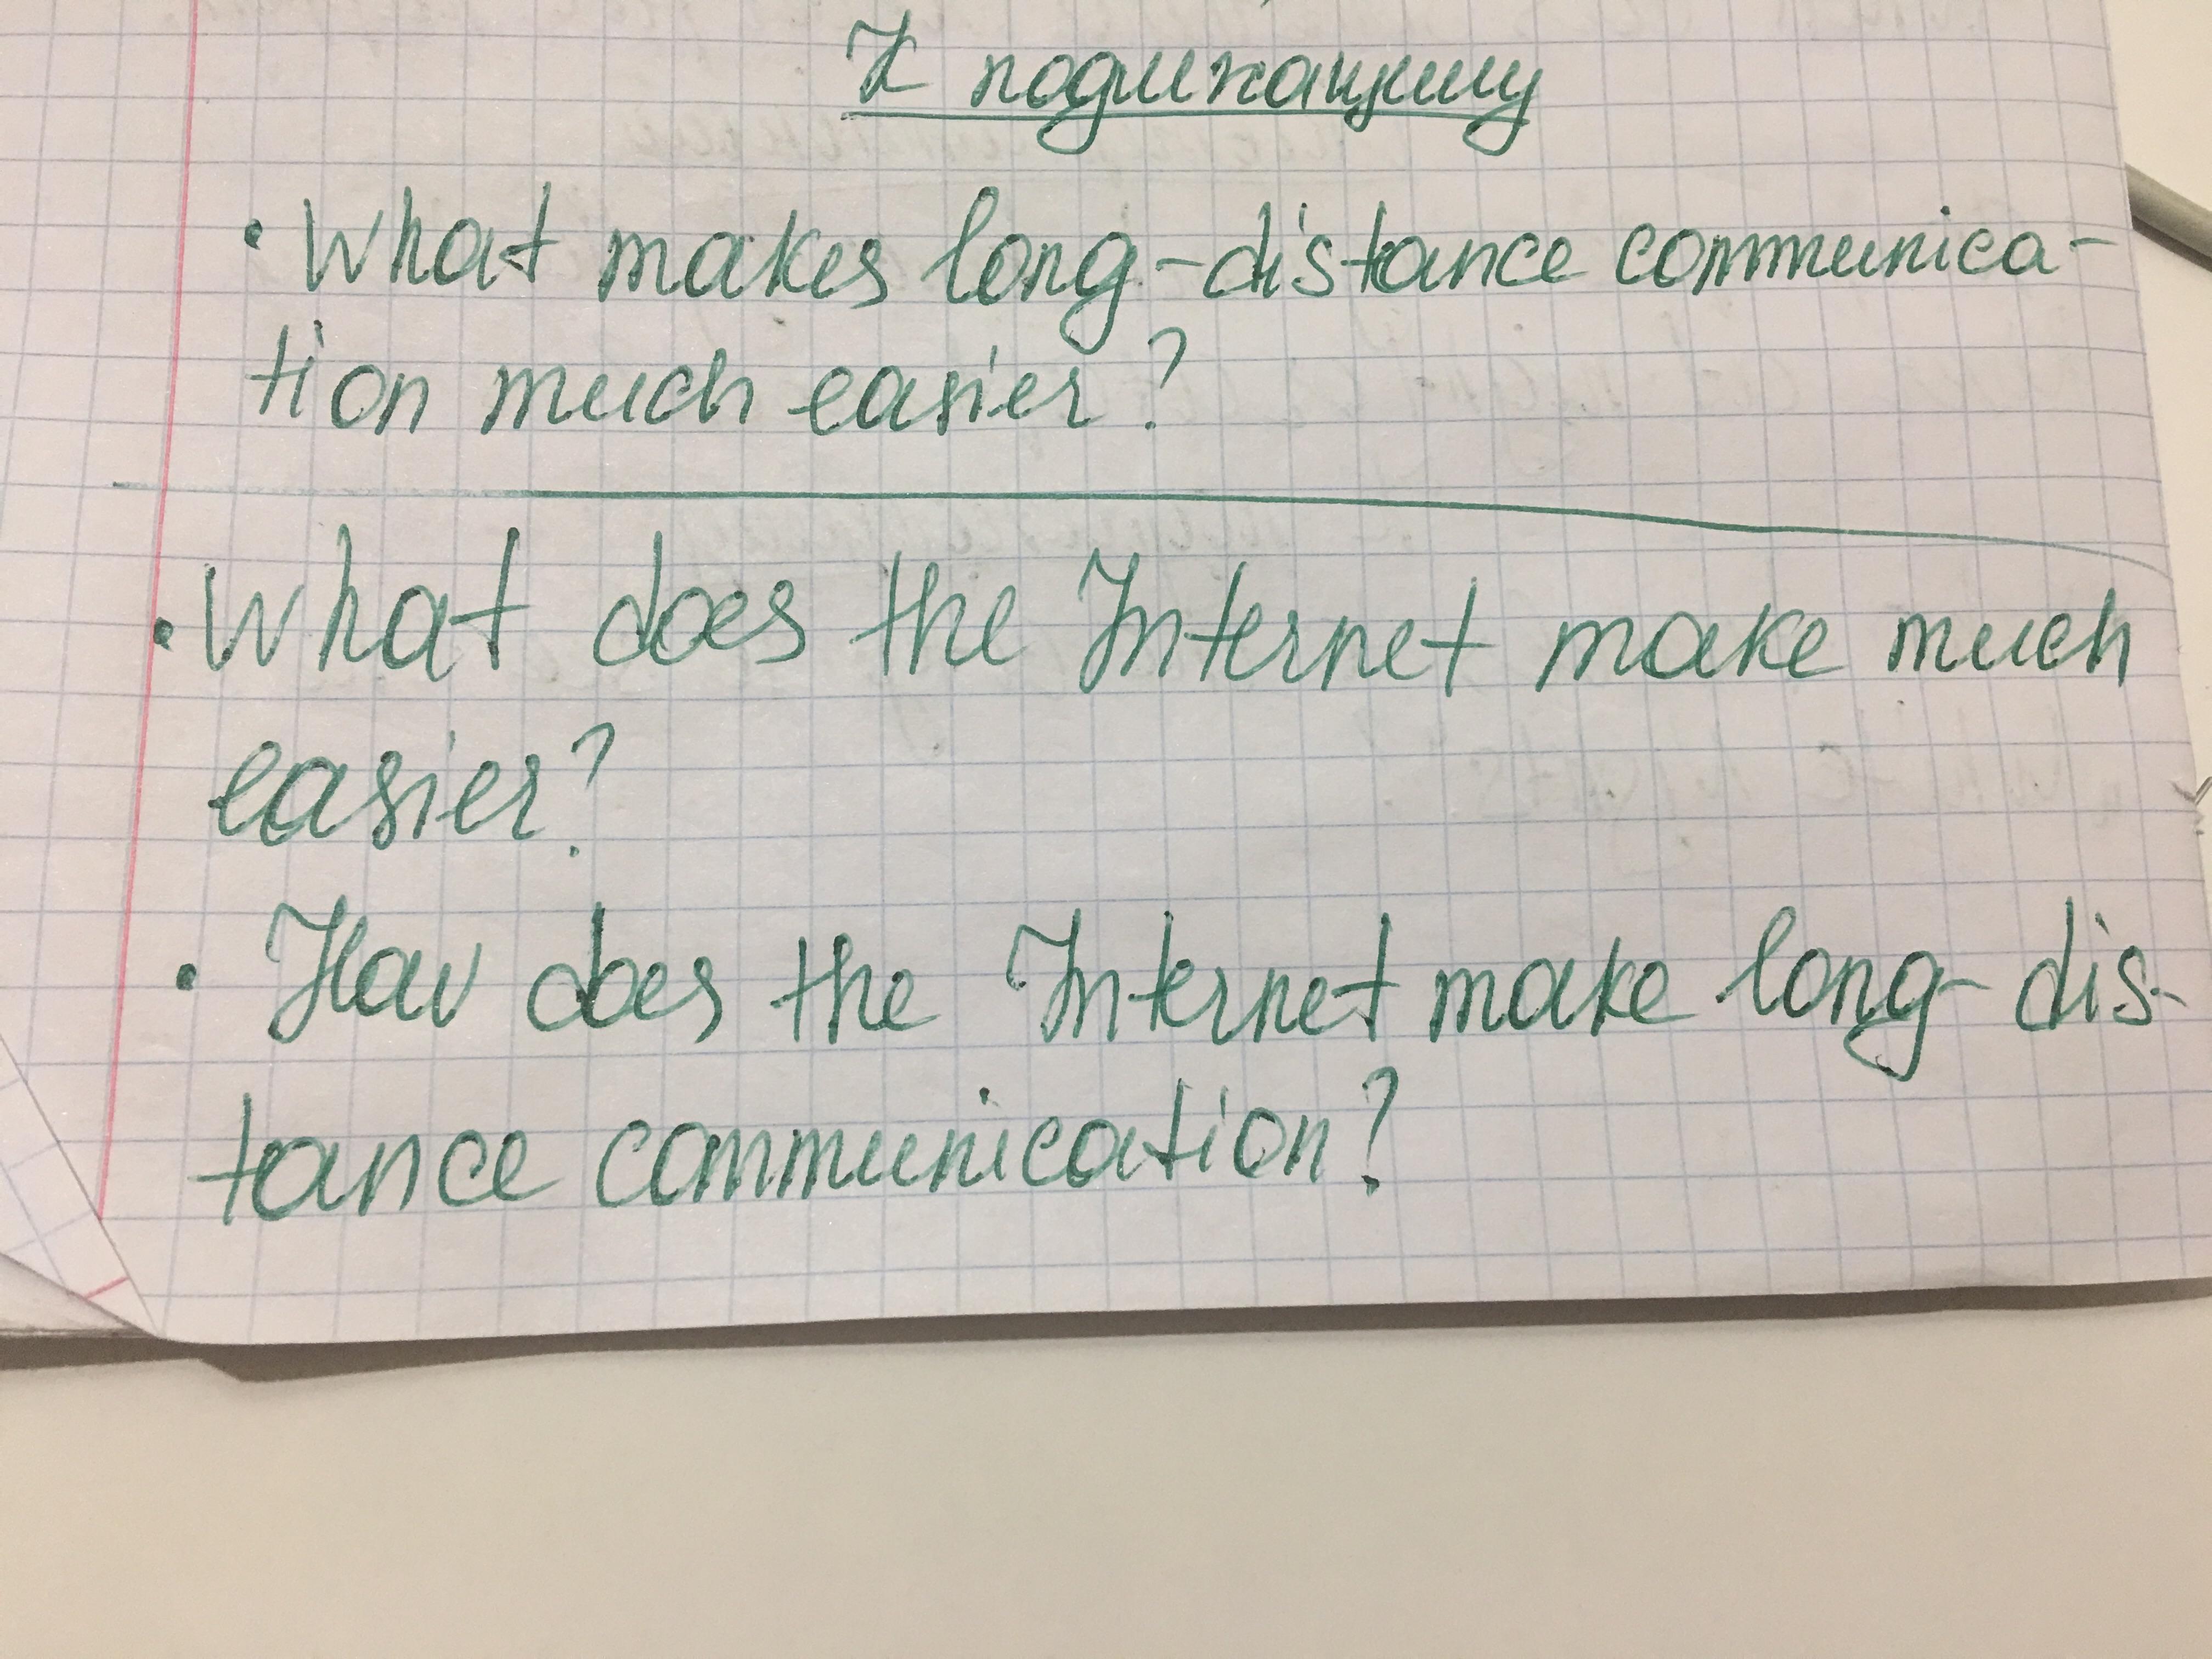 К подлежащему
• What makes long-distance communica-
tion much easier?
• What does the Internet make much
easier?
• How does the Internet make long-dis-
tance communication?